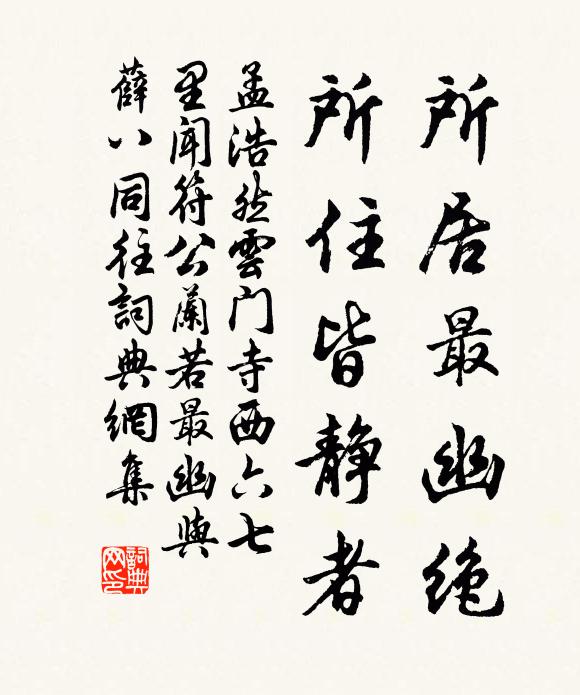 所居最幽绝
所住皆静者
孟浩然雲门寺西六七
里闻符公蘭若最幽與
薛八同往詞典網集
詞典
网印